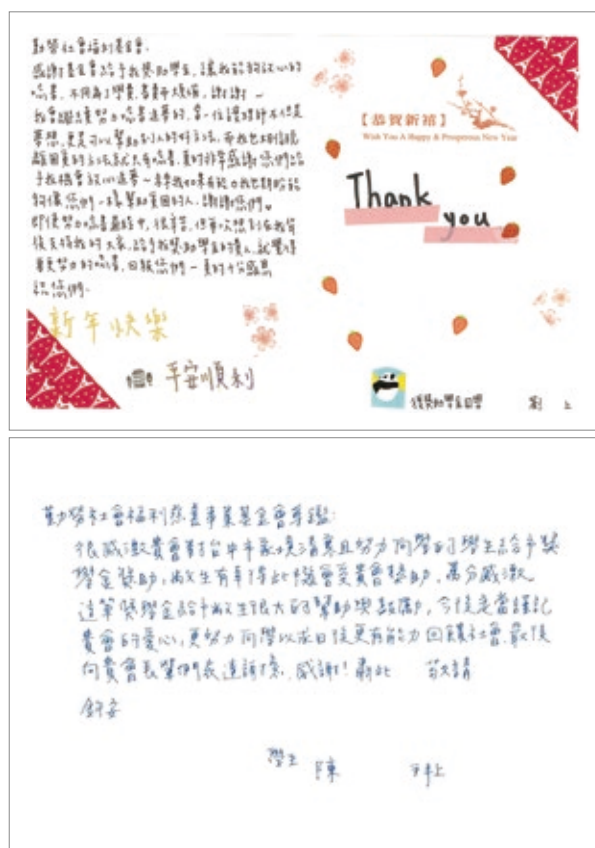 勤勞社會福利基金會:
感謝基金會給予我獎助學金,讓我能夠放心的
唸書,不用為了學費、書費而煩惱,謝謝~
我會繼續努力唸書追夢的,當一位護理師不但是
夢想,更是可以幫助別人的好方法,而我也知道脫
離困貧的方法就只有唸書,真的非常感謝您們給
予我機會放心追夢~希望我如果有能力我也期盼能
夠像您們一樣幫助貧困的人,謝謝您們
即使努力唸書過程中,很辛苦,但每次想到在我背
後支持我的大家,給予我獎助學金的貴人,就覺得
要更努力的唸書,回報您們~真的十分感恩
您們.
新年快樂
平安順利
【恭賀新禧】
Wish You A Happy & Prosperous New Year
Thank
you
獲獎助學金同學 劉 上
勤勞社會福利慈善事業基金會尊鑑:
很感激貴會對台中市家境清寒且努力向學的學生給予獎
學金獎助,敝生有幸得此機會受貴會獎助,萬分感激
這筆獎學金給予敝生很大的幫助與鼓勵,今後定當謹記
貴會的愛心,更努力向學以求日後更有能力回饋社會.最後
向貴會長輩們表達謝意,感謝!肅此 敬請
鈞安
學生 陳 拜上